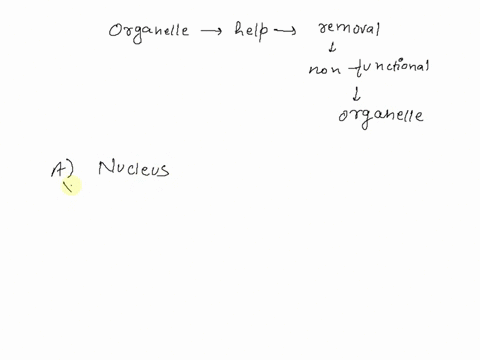 Organelle → help → removal
↓
non-functional
↓
organelle
A) Nucleus